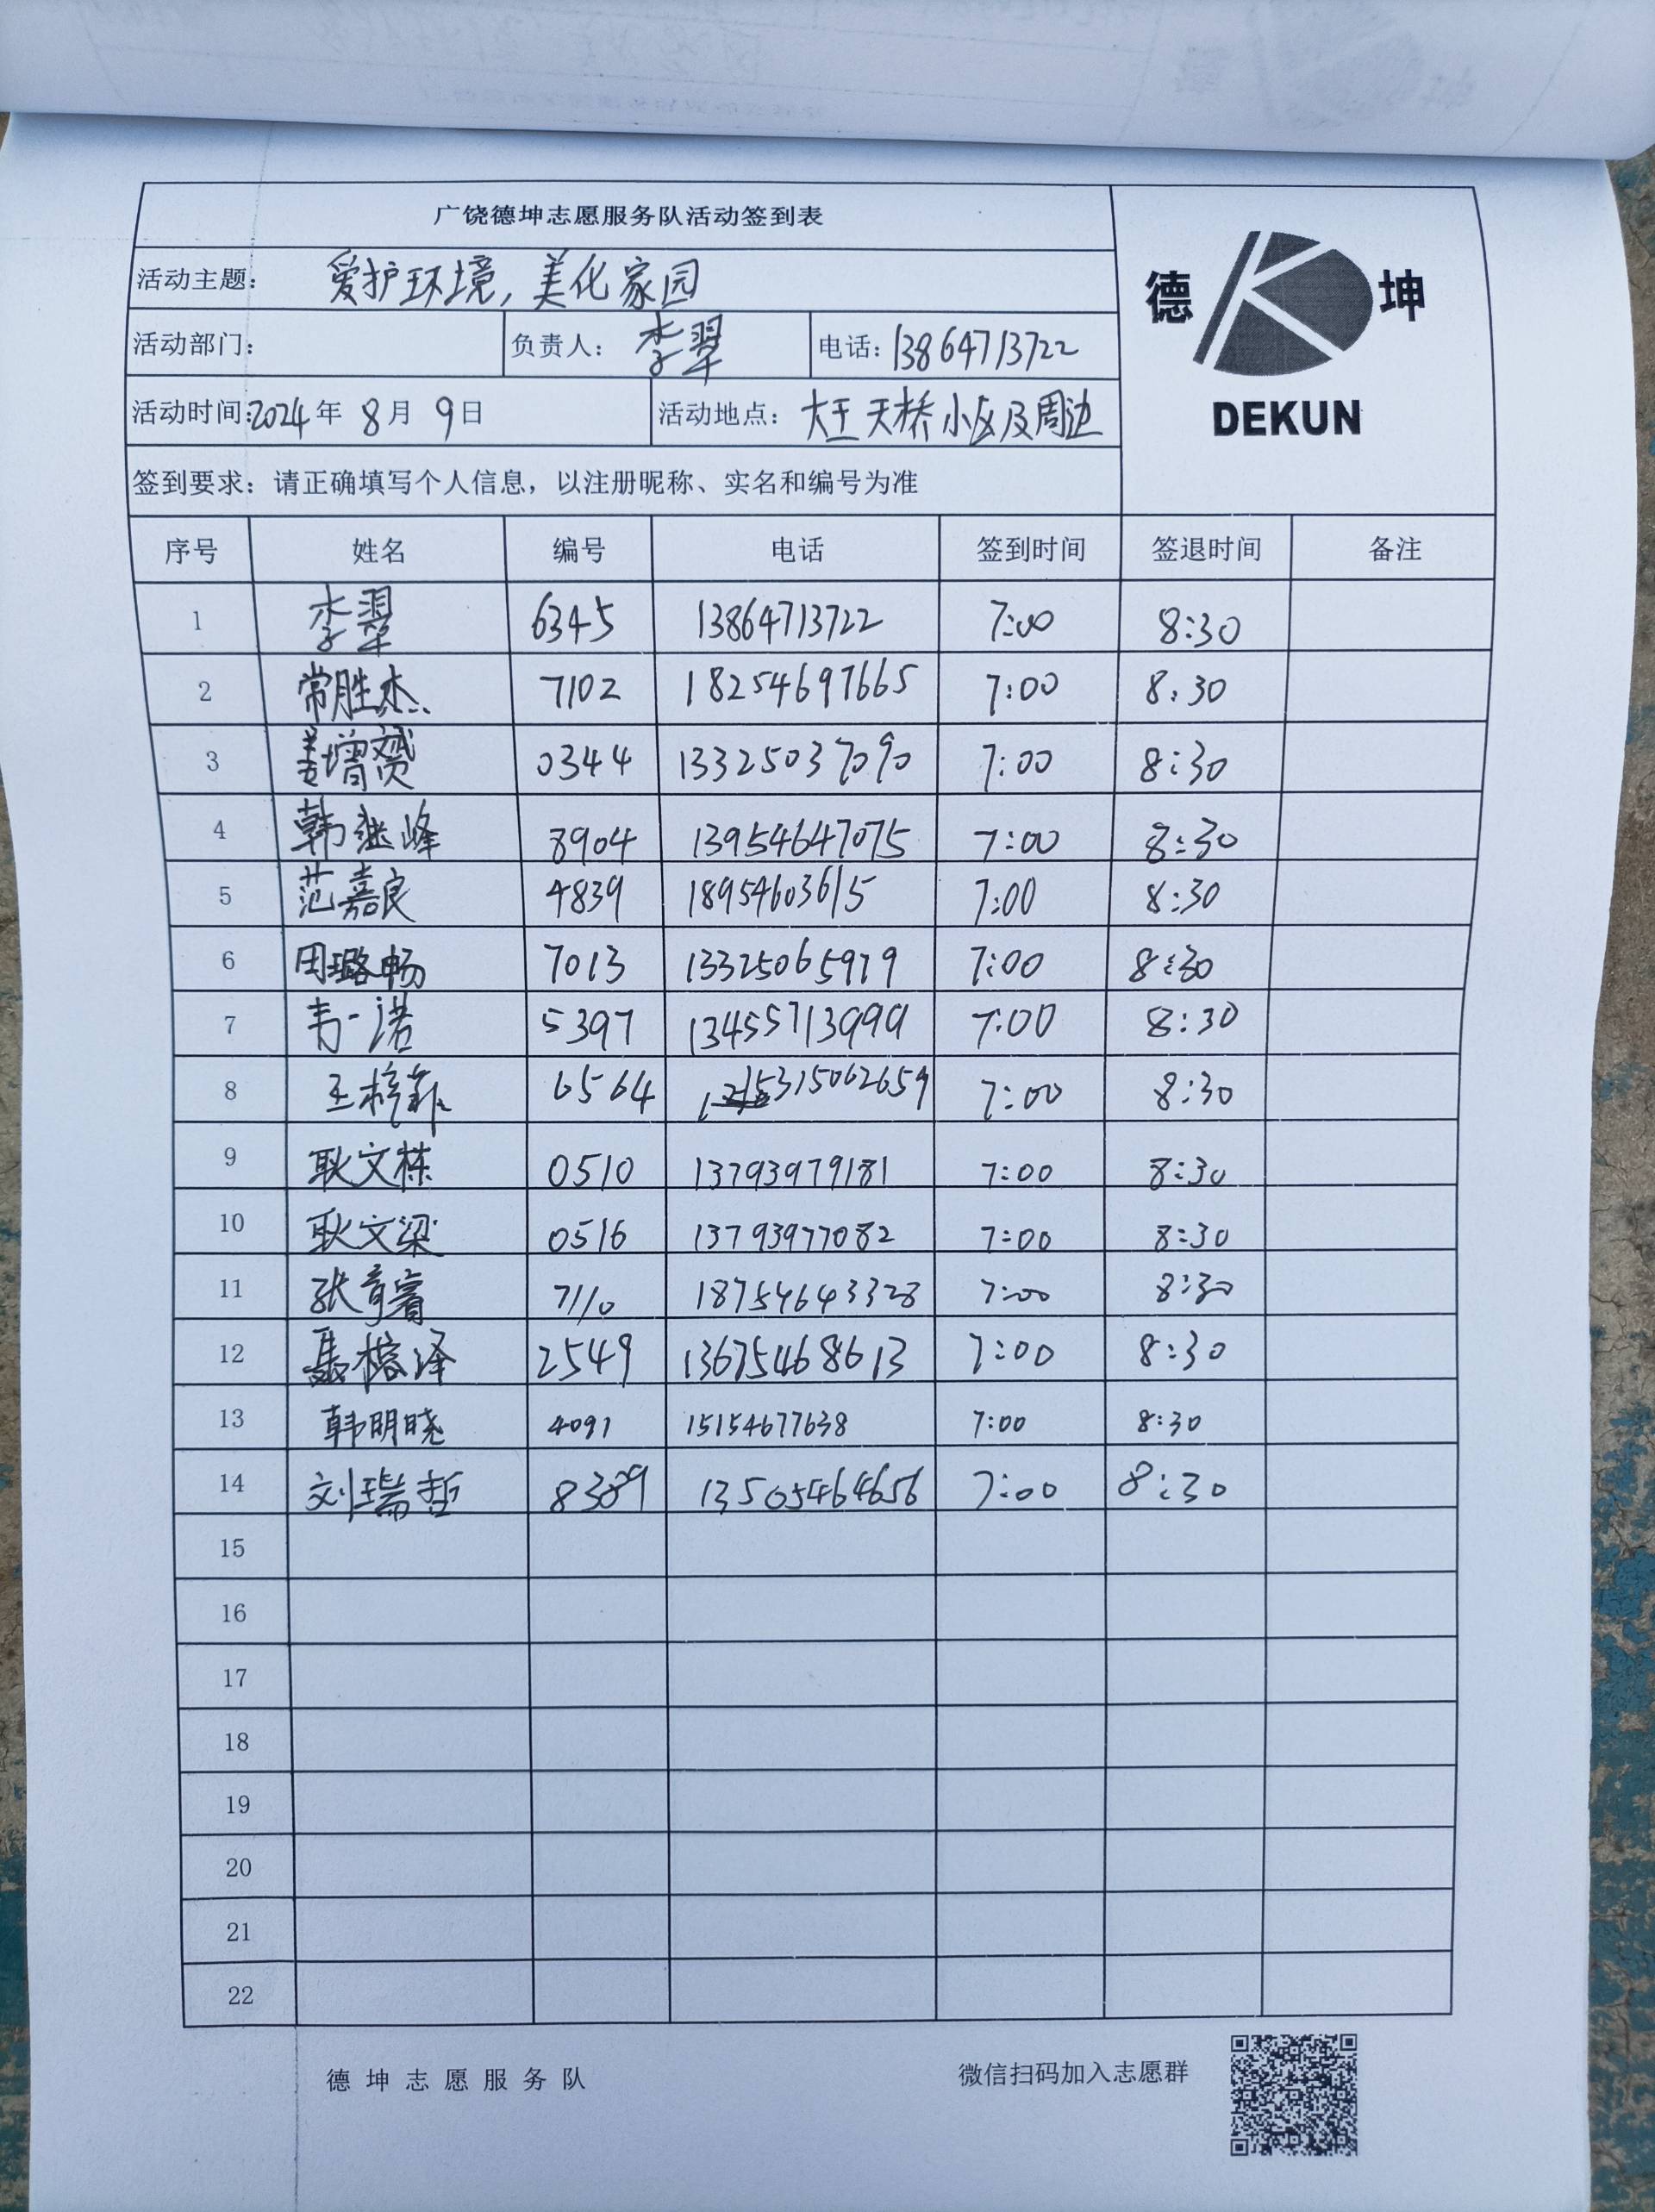 广饶德坤志愿服务队活动签到表
活动主题： 爱护环境，美化家园
德 坤
DEKUN
活动部门： 负责人：李翠 电话：13864713722
活动时间：2024年 8月 9日 活动地点：大王天桥小区及周边
签到要求：请正确填写个人信息，以注册昵称、实名和编号为准
序号 姓名 编号 电话 签到时间 签退时间 备注
1 李翠 6345 13864713722 7:00 8:30
2 常胜杰 7102 18254697665 7:00 8:30
3 姜增赟 0344 13325037090 7:00 8:30
4 韩继峰 8904 13954647075 7:00 8:30
5 范嘉良 4839 18954603615 7:00 8:30
6 田璐畅 7013 13325065979 7:00 8:30
7 韦一诺 5397 13455713999 7:00 8:30
8 王梓菲 6564 15315062659 7:00 8:30
9 耿文栋 0510 13793979181 7:00 8:30
10 耿文梁 0516 13793977082 7:00 8:30
11 张育睿 7110 18754643328 7:00 8:30
12 聂榕泽 2549 13675468613 7:00 8:30
13 韩明晓 4091 15154677638 7:00 8:30
14 刘瑞哲 8389 13505464656 7:00 8:30
15
16
17
18
19
20
21
22
德坤志愿服务队 微信扫码加入志愿群